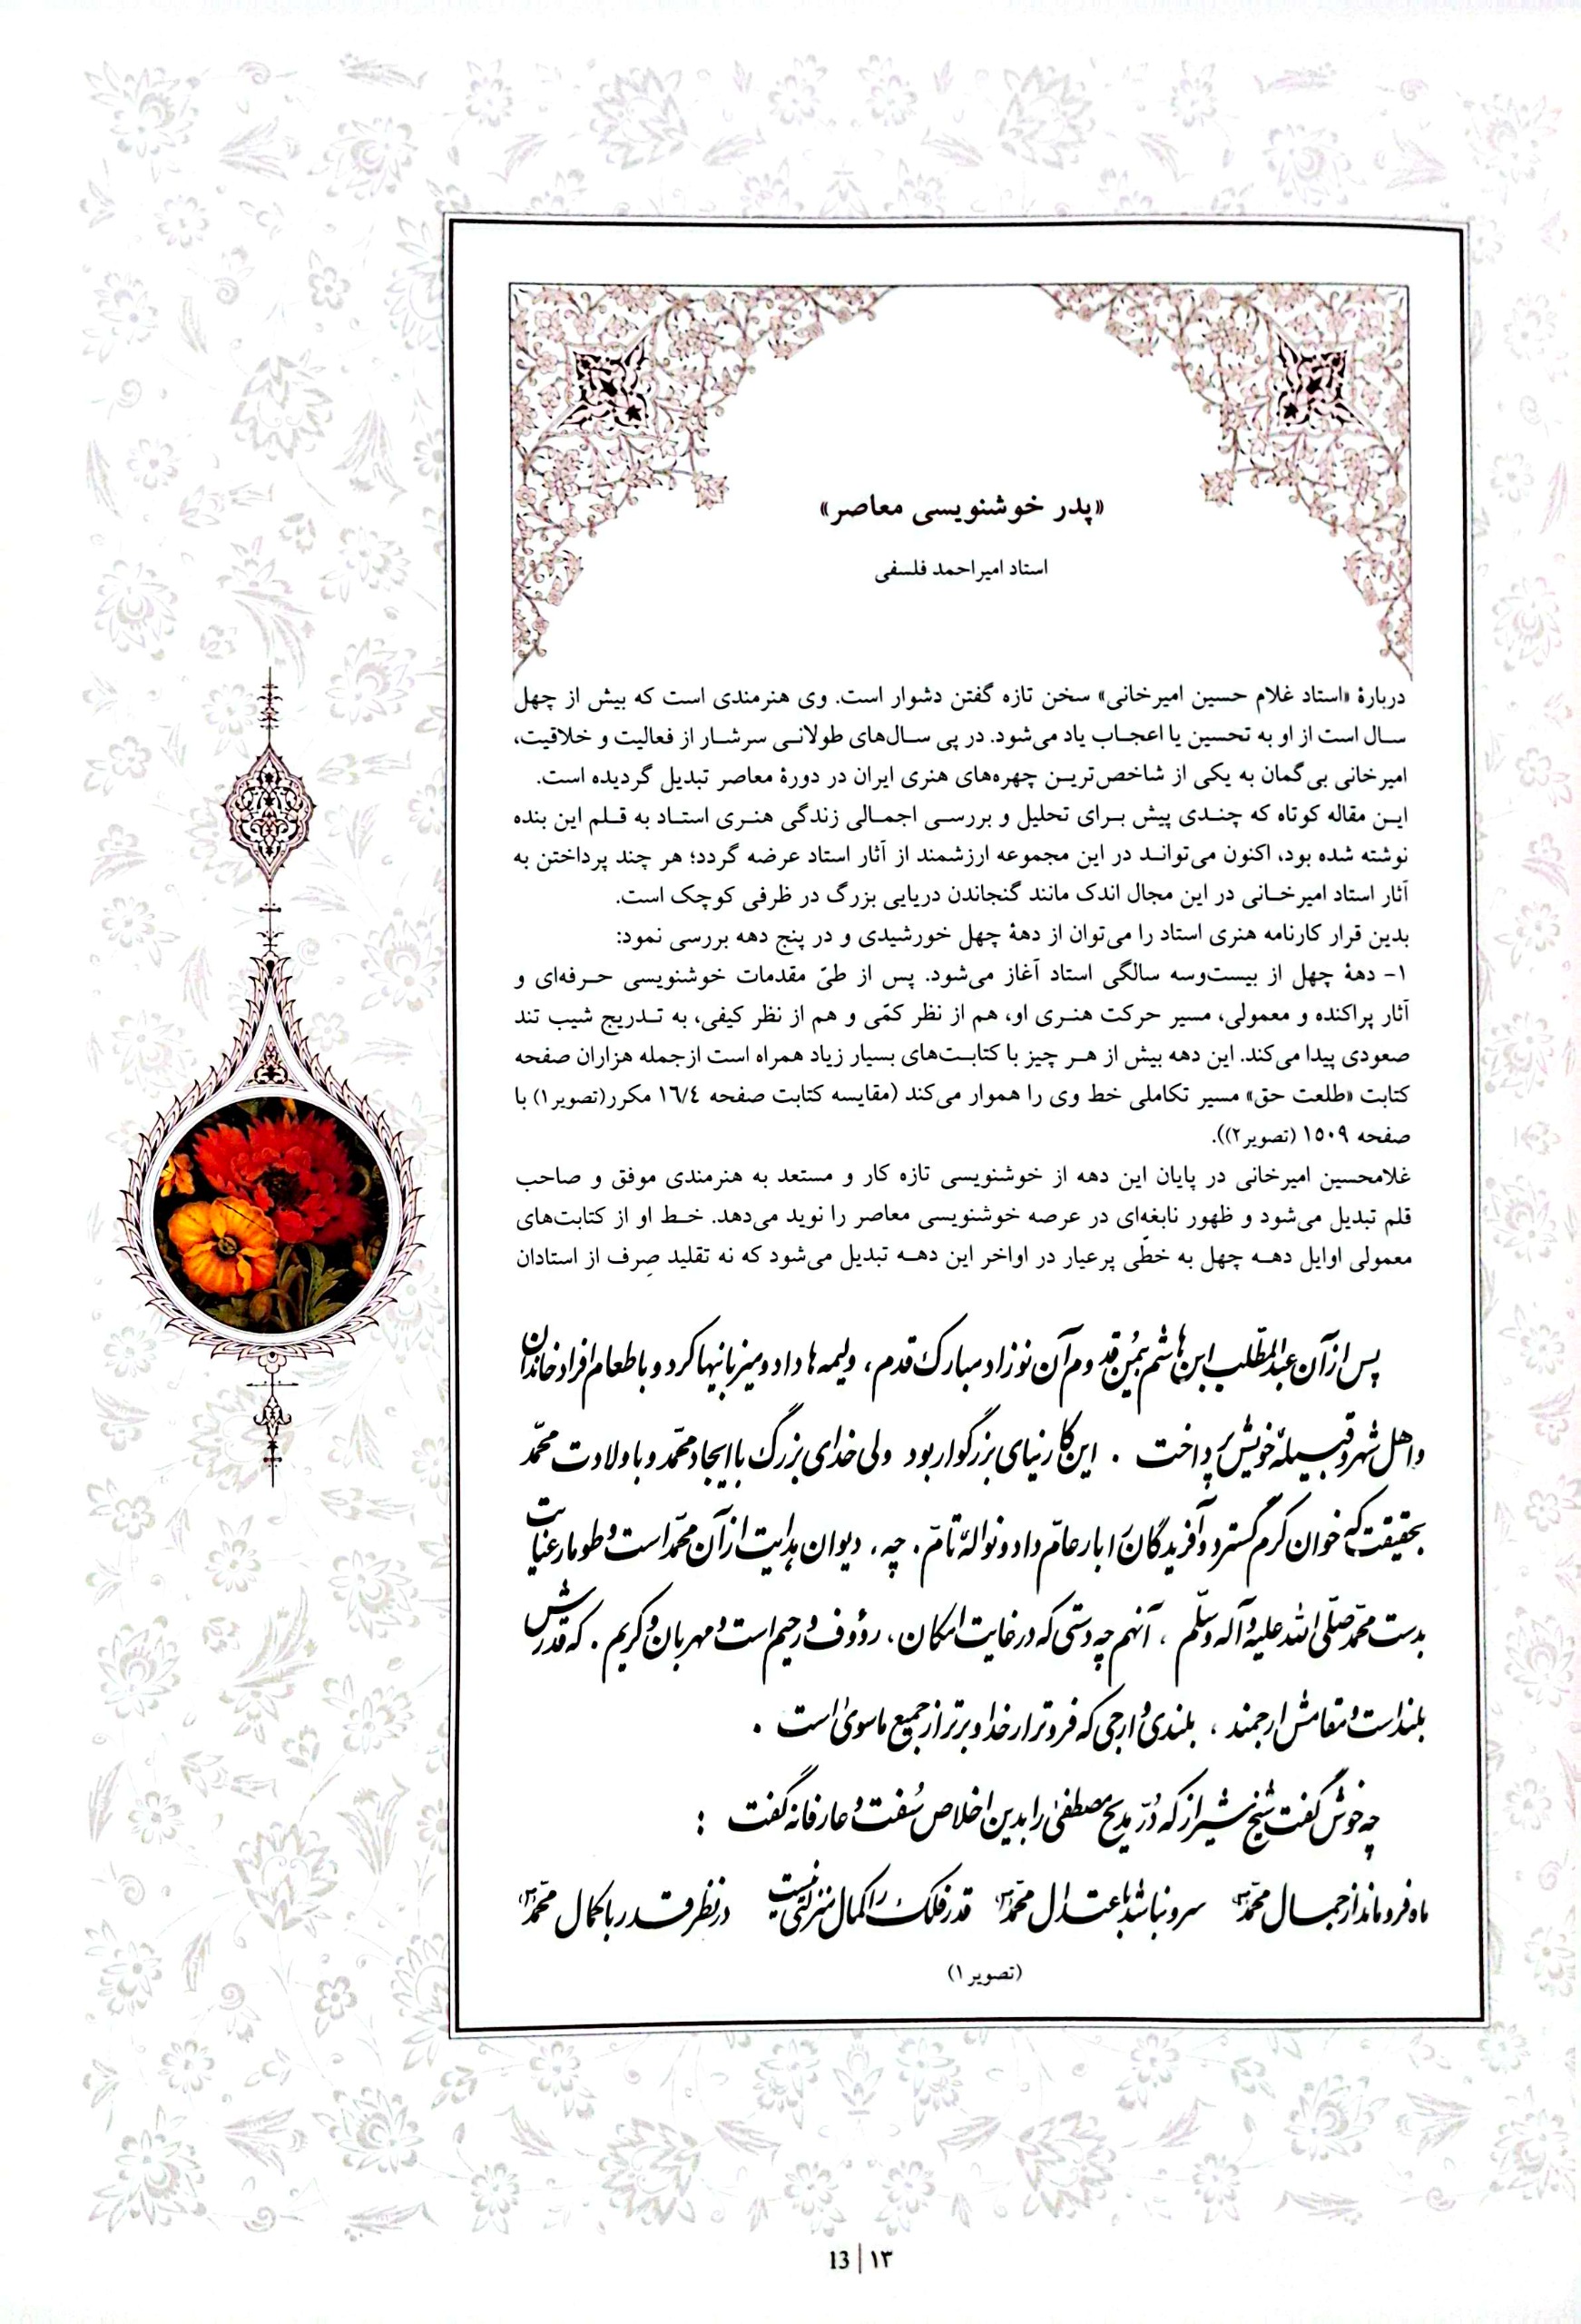 «پدر خوشنویسی معاصر»
استاد امیراحمد فلسفی
دربارهٔ «استاد غلام حسین امیرخانی» سخن تازه گفتن دشوار است. وی هنرمندی است که بیش از چهل
سال است از او به تحسین یا اعجاب یاد می‌شود. در پی سال‌های طولانی سرشار از فعالیت و خلاقیت،
امیرخانی بی‌گمان به یکی از شاخص‌ترین چهره‌های هنری ایران در دورهٔ معاصر تبدیل گردیده است.
این مقاله کوتاه که چندی پیش برای تحلیل و بررسی اجمالی زندگی هنری استاد به قلم این بنده
نوشته شده بود، اکنون می‌تواند در این مجموعه ارزشمند از آثار استاد عرضه گردد؛ هر چند پرداختن به
آثار استاد امیرخانی در این مجال اندک مانند گنجاندن دریایی بزرگ در ظرفی کوچک است.
بدین قرار کارنامه هنری استاد را می‌توان از دههٔ چهل خورشیدی و در پنج دهه بررسی نمود:
۱- دههٔ چهل از بیست‌وسه سالگی استاد آغاز می‌شود. پس از طیّ مقدمات خوشنویسی حرفه‌ای و
آثار پراکنده و معمولی، مسیر حرکت هنری او، هم از نظر کمّی و هم از نظر کیفی، به تدریج شیب تند
صعودی پیدا می‌کند. این دهه بیش از هر چیز با کتابت‌های بسیار زیاد همراه است ازجمله هزاران صفحه
کتابت «طلعت حق» مسیر تکاملی خط وی را هموار می‌کند (مقایسه کتابت صفحه ۱۶/۴ مکرر(تصویر۱) با
صفحه ۱۵۰۹ (تصویر۲)).
غلامحسین امیرخانی در پایان این دهه از خوشنویسی تازه کار و مستعد به هنرمندی موفق و صاحب
قلم تبدیل می‌شود و ظهور نابغه‌ای در عرصه خوشنویسی معاصر را نوید می‌دهد. خط او از کتابت‌های
معمولی اوایل دهه چهل به خطّی پرعیار در اواخر این دهه تبدیل می‌شود که نه تقلید صِرف از استادان
پس از آن عبدالمطّلب ابن هاشم بیُمن قدوم آن نوزاد مبارک قدم، ولیمه ها داد و میزبانیها کرد و با طعام افراد خاندان
و اهل شهر و قبیلهٔ خویش پرداخت . این کار نیای بزرگوار بود ولی خدای بزرگ با ایجاد محمّد و با ولادت محمّد
بحقیقت که خوان کرم گسترد و آفریدگان را بار عامّ داد و نوالهٔ تامّ . چه، دیوان هدایت از آن محمّد است و طومار عنایت
بدست محمّد صلّی الله علیه و آله و سلّم ، آنهم چه دستی که در غایت امکان، رؤوف و رحیم است و مهربان و کریم . که قدرش
بلند است و مقامش ارجمند ، بلندی و ارجی که فروتر از خدا و برتر از جمیع ماسوی است .
چه خوش گفت شیخ شیراز که دُرّ مدیح مصطفی را بدین اخلاص سُفت و عارفانه گفت :
ماه فرو ماند از جمال محمّد(ص) سرو نباشد باعتدال محمّد(ص) قدر فلک را کمال منزلتی نیست در نظر قدر با کمال محمّد(ص)
(تصویر ۱)
13 | ۱۳